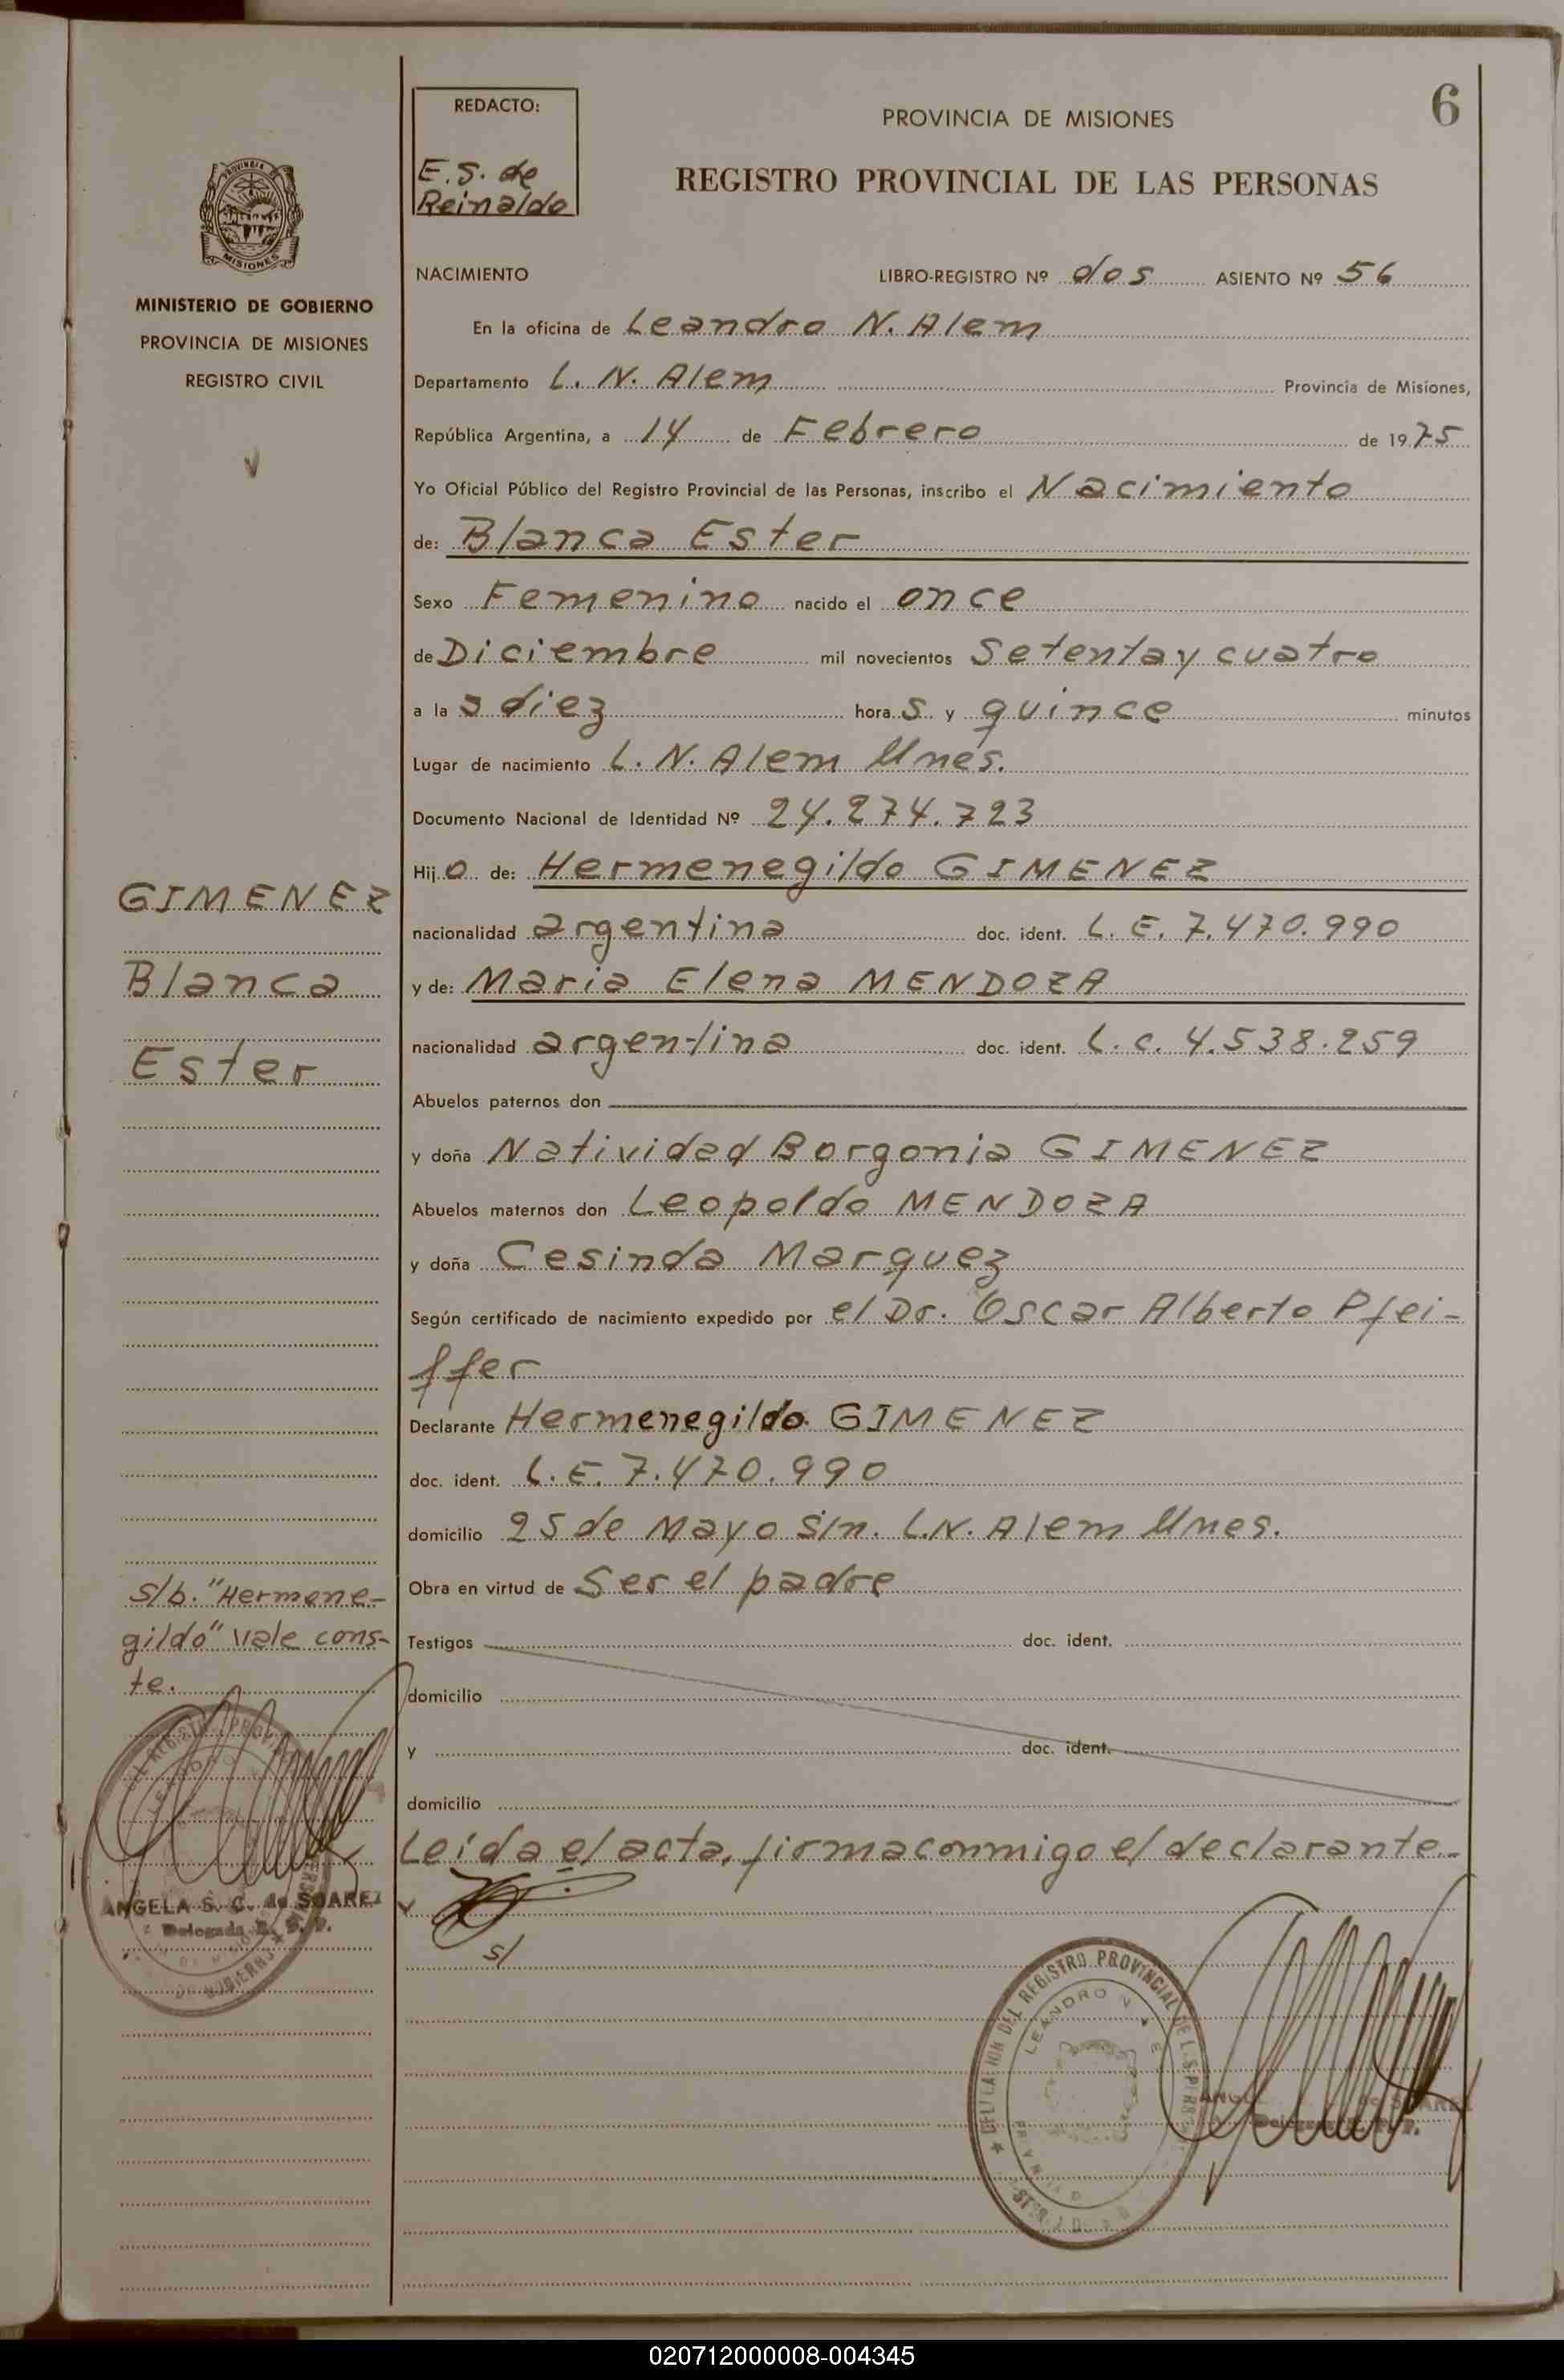 6
REDACTO:
E. S. de
Reinaldo
PROVINCIA DE MISIONES
REGISTRO PROVINCIAL DE LAS PERSONAS
MISIONES
MINISTERIO DE GOBIERNO
PROVINCIA DE MISIONES
REGISTRO CIVIL
NACIMIENTO LIBRO-REGISTRO Nº dos ASIENTO Nº 56
En la oficina de Leandro N. Alem
Departamento L. N. Alem Provincia de Misiones,
República Argentina, a 14 de Febrero de 1975
Yo Oficial Público del Registro Provincial de las Personas, inscribo el Nacimiento
de: Blanca Ester
Sexo Femenino nacido el once
de Diciembre mil novecientos Setenta y cuatro
a las diez horas y quince minutos
Lugar de nacimiento L. N. Alem Mnes.
Documento Nacional de Identidad Nº 24.274.723
Hijo de: Hermenegildo GIMENEZ
GIMENEZ
nacionalidad argentina doc. ident. L. E. 7.470.990
Blanca
y de: Maria Elena MENDOZA
nacionalidad argentina doc. ident. L. C. 4.538.259
Ester
Abuelos paternos don
y doña Natividad Borgonia GIMENEZ
Abuelos maternos don Leopoldo MENDOZA
y doña Cesinda Marquez
Según certificado de nacimiento expedido por el Dr. Oscar Alberto Pfei-
ffer
Declarante Hermenegildo GIMENEZ
doc. ident. L. E. 7.470.990
domicilio 25 de Mayo S/n. L.N. Alem Mnes.
Obra en virtud de Ser el padre
s/b. "Hermene-
gildo" vale cons-
te.
Testigos doc. ident.
domicilio
y doc. ident.
domicilio
Leída el acta, firma conmigo el declarante.
ANGELA S. C. de SOAREZ
Delegada R. P. P.
s/
REGISTRO PROVINCIAL DE
LEANDRO N
020712000008-004345